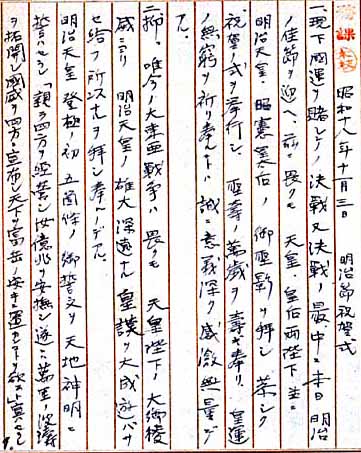 昭和十八年十一月三日 明治節祝賀式
一、現下國運ヲ賭シテノ決戦又決戦ノ最中ニ本日 明治
ノ佳節ヲ迎ヘ、茲ニ畏クモ 天皇・皇后両陛下並ニ
明治天皇・昭憲皇后ノ御聖影ヲ拝シ 恭シク
祝賀ノ式ヲ挙行シ 聖寿ノ萬歳ヲ寿ギ奉リ、皇運
ノ無窮ヲ祈リ奉ルコトハ 誠ニ意義深ク 感激無量デ
アル。
二、抑、唯今ノ大東亜戦争ハ 畏クモ 天皇陛下ノ大御稜
威ニヨリ 明治天皇ノ雄大深遠ナル 皇謨ヲ大成遊バサ
セ給フ所以ナルヲ拝シ奉ルノデアル。
明治天皇 登極ノ初 五箇條ノ御誓文ヲ 天地神明ニ
誓ハセラレ 「親ラ四方ヲ経営シ 汝億兆ヲ安撫シ 遂ニハ萬里ノ波濤
ヲ拓開シ 國威ヲ四方ニ宣布シ 天下ヲ富岳ノ安キニ置カンコトヲ欲ス」ト宣ハセラレ